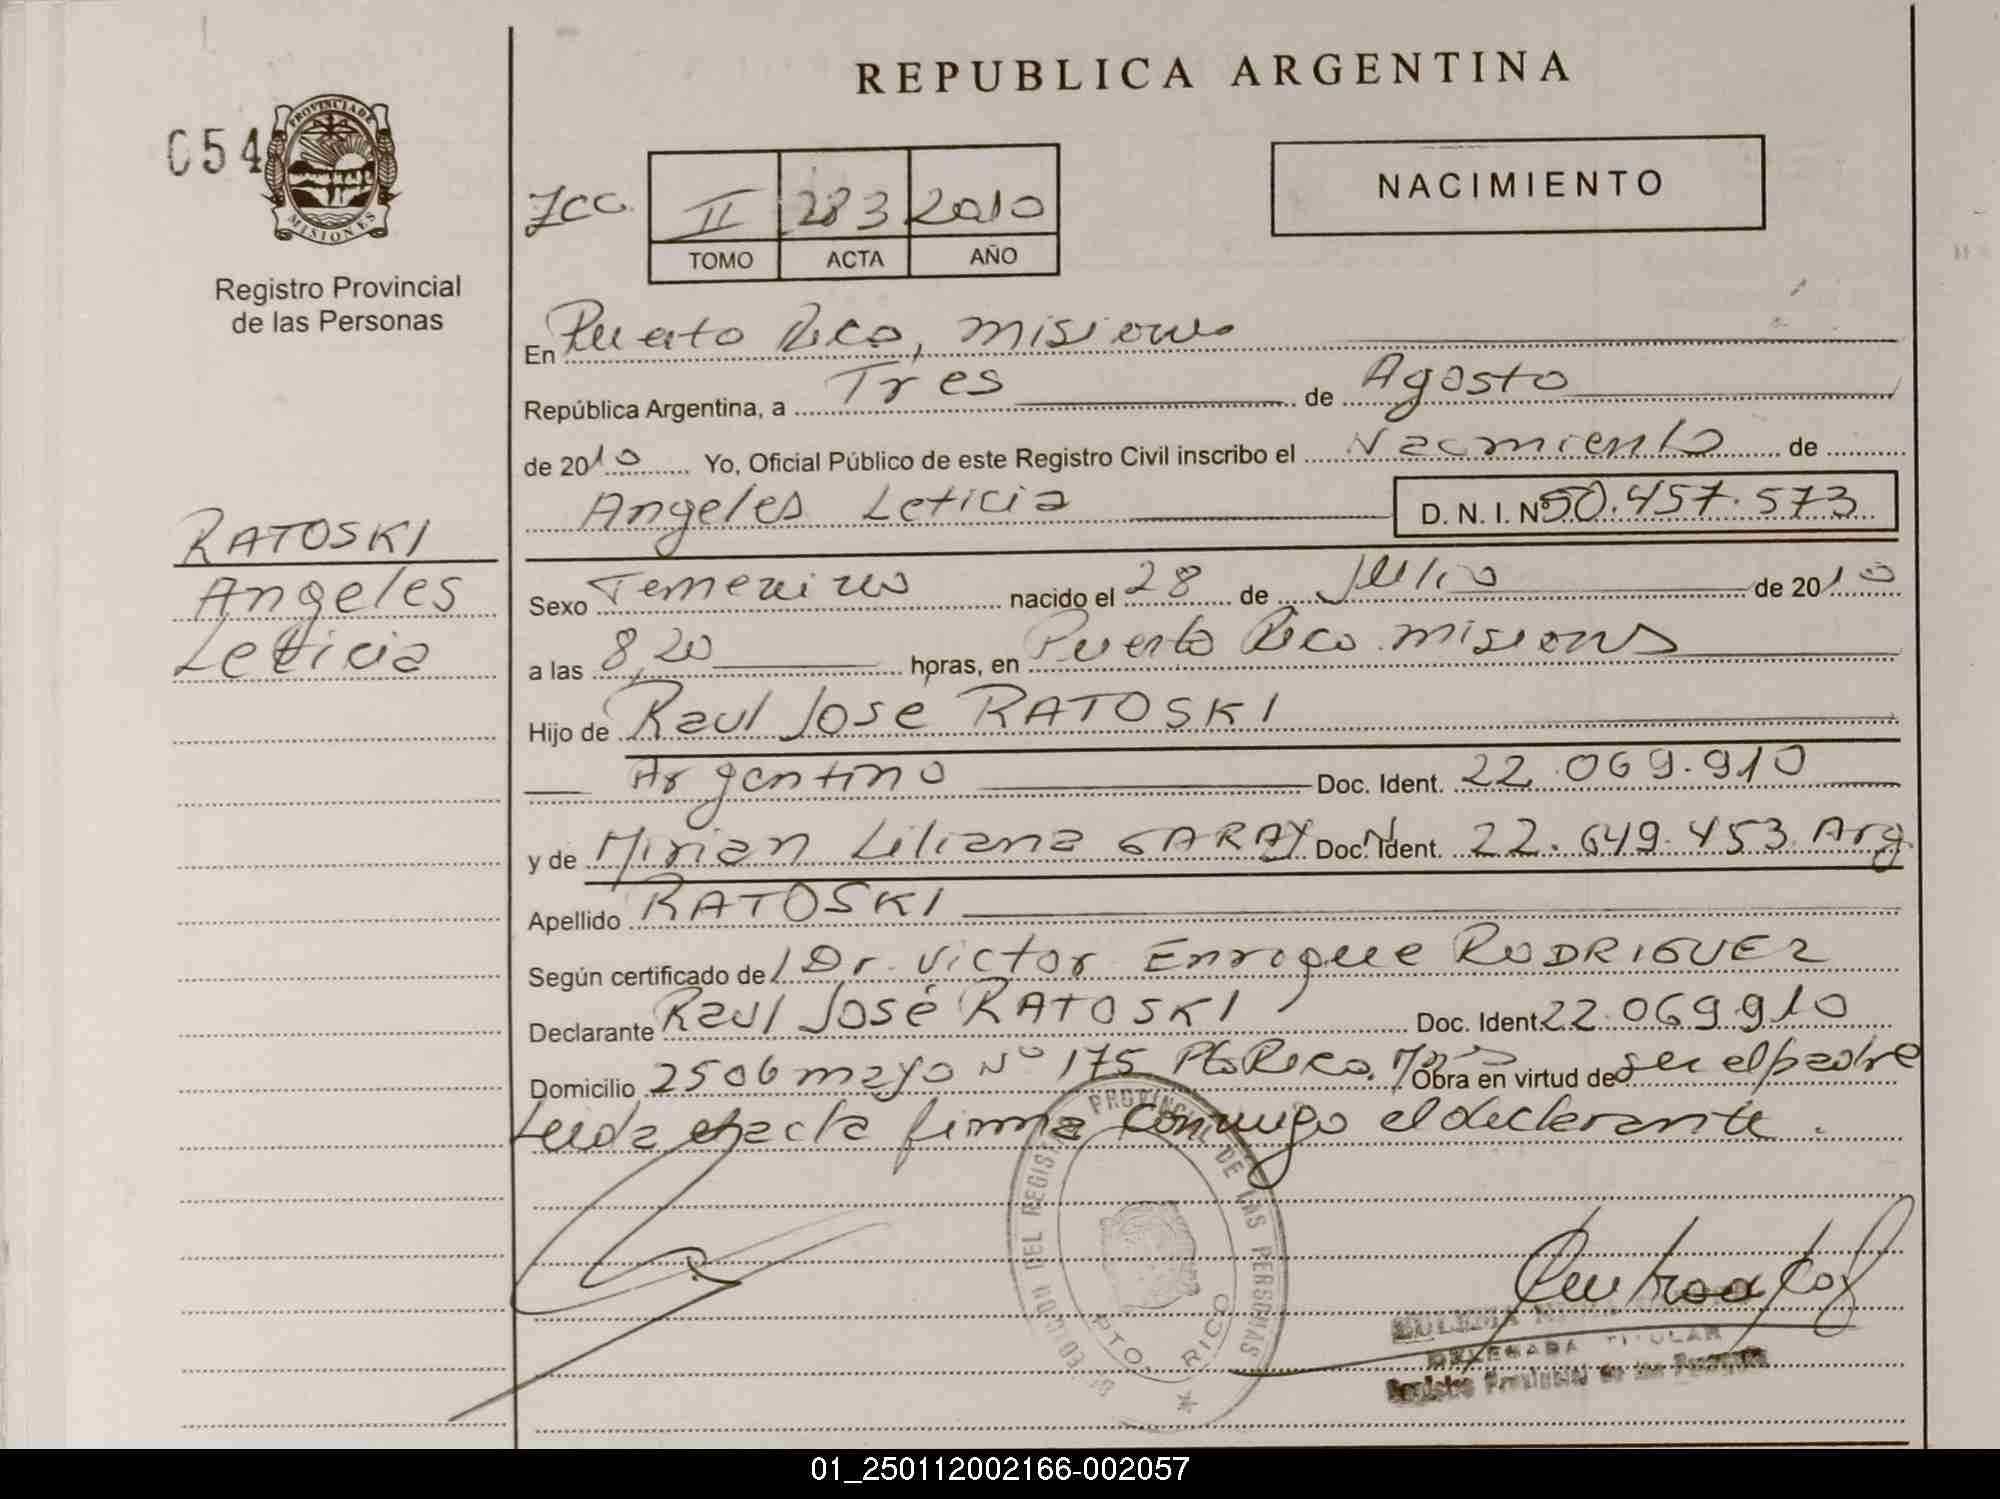 REPUBLICA ARGENTINA
054
PROVINCIA DE
MISIONES
Registro Provincial
de las Personas
II 283 2010
TOMO ACTA AÑO
NACIMIENTO
En Puerto Rico, Misiones
República Argentina, a Tres de Agosto
de 2010 Yo, Oficial Público de este Registro Civil inscribo el Nacimiento de
Angeles Leticia D. N. I. Nº 50.457.573
RATOSKI
Angeles
Leticia
Sexo Femenino nacido el 28 de Julio de 2010
a las 8,20 horas, en Puerto Rico Misiones
Hijo de Raul Jose RATOSKI
Argentino Doc. Ident. 22.069.910
y de Mirian Liliana GARAY Doc. Ident. 22.649.453 Arg.
Apellido RATOSKI
Según certificado de Dr. Victor Enrique RODRIGUEZ
Declarante Raul José RATOSKI Doc. Ident. 22.069.910
Domicilio 25 de mayo Nº 175 Pto Rico. Mnes Obra en virtud de ser el padre
Leida el acta firma conmigo el declarante.
PROVINCIAL DE LAS PERSONAS
PTO. RICO
DELEGADA TITULAR
Registro Provincial de las Personas
01_250112002166-002057